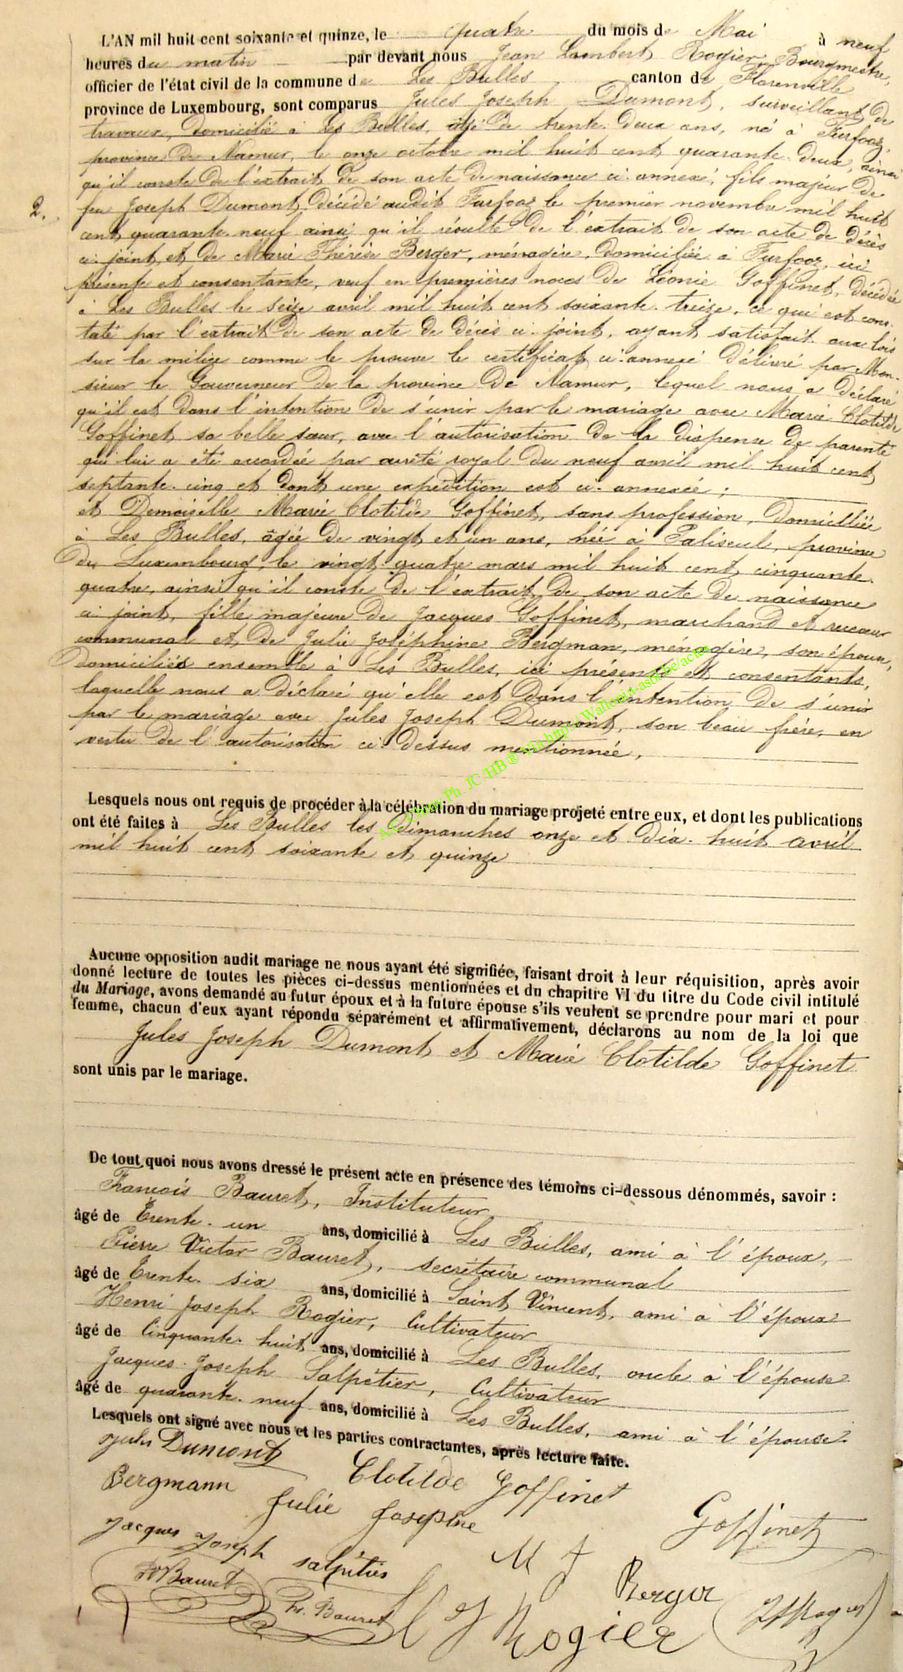 L'AN mil huit cent soixante et quinze, le quatre du mois de Mai à neuf
heures du matin par devant nous Jean Lambert Rogier, Bourgmestre,
officier de l'état civil de la commune de Les Bulles canton de Florenville
province de Luxembourg, sont comparus Jules Joseph Dumont, surveillant de
travaux, domicilié à Les Bulles, âgé de trente deux ans, né à Furfooz,
province de Namur, le onze octobre mil huit cent quarante deux, ainsi
qu'il conste de l'extrait de son acte de naissance ci annexé, fils majeur de
2. feu Joseph Dumont, décédé audit Furfooz le premier novembre mil huit
cent quarante neuf ainsi qu'il résulte de l'extrait de son acte de décès
ci joint, et de Marie Thérèse Berger, ménagère, domiciliée à Furfooz, ici
présente et consentante, veuf en premières noces de Léonie Goffinet, décédée
à Les Bulles le seize avril mil huit cent soixante treize, ce qui est cons-
taté par l'extrait de son acte de décès ci joint, ayant satisfait aux lois
sur la milice comme le prouve le certificat ci annexé délivré par Mon-
sieur le Gouverneur de la province de Namur, lequel nous a déclaré
qu'il est dans l'intention de s'unir par le mariage avec Marie Clotilde
Goffinet sa belle sœur, avec l'autorisation de la dispense de parenté
qui lui a été accordée par arrêté royal du neuf avril mil huit cent
septante cinq et dont une expédition est ci annexée ;
et Demoiselle Marie Clotilde Goffinet, sans profession, domiciliée
à Les Bulles, âgée de vingt et un ans, née à Paliseul, province
du Luxembourg, le vingt quatre mars mil huit cent cinquante
quatre, ainsi qu'il conste de l'extrait de son acte de naissance
ci joint, fille majeure de Jacques Goffinet, marchand et receveur
communal et de Julie Joséphine Bergman, ménagère, son épouse,
domiciliés ensemble à Les Bulles, ici présents et consentants,
laquelle nous a déclaré qu'elle est dans l'intention de s'unir
par le mariage avec Jules Joseph Dumont, son beau frère, en
vertu de l'autorisation ci dessus mentionnée.
Lesquels nous ont requis de procéder à la célébration du mariage projeté entre eux, et dont les publications
ont été faites à Les Bulles les dimanches onze et dix huit avril
mil huit cent soixante et quinze
Aucune opposition audit mariage ne nous ayant été signifiée, faisant droit à leur réquisition, après avoir
donné lecture de toutes les pièces ci-dessus mentionnées et du chapitre VI du titre du Code civil intitulé
du Mariage, avons demandé au futur époux et à la future épouse s'ils veulent se prendre pour mari et pour
femme, chacun d'eux ayant répondu séparément et affirmativement, déclarons au nom de la loi que
Jules Joseph Dumont et Marie Clotilde Goffinet
sont unis par le mariage.
De tout quoi nous avons dressé le présent acte en présence des témoins ci-dessous dénommés, savoir :
François Bauret, Instituteur
âgé de Trente un ans, domicilié à Les Bulles, ami à l'époux,
Pierre Victor Bauret, secrétaire communal
âgé de Trente six ans, domicilié à Saint Vincent, ami à l'époux
Henri Joseph Rogier, Cultivateur
âgé de Cinquante huit ans, domicilié à Les Bulles, oncle à l'épouse
Jacques Joseph Salpétier, Cultivateur
âgé de quarante neuf ans, domicilié à Les Bulles, ami à l'épouse
Lesquels ont signé avec nous et les parties contractantes, après lecture faite.
Jules Dumont
Clotilde Goffinet
Bergmann Julie Josephine Goffinet
Jacques Joseph Salpétier M J Berger
Bauret Bauret Rogier